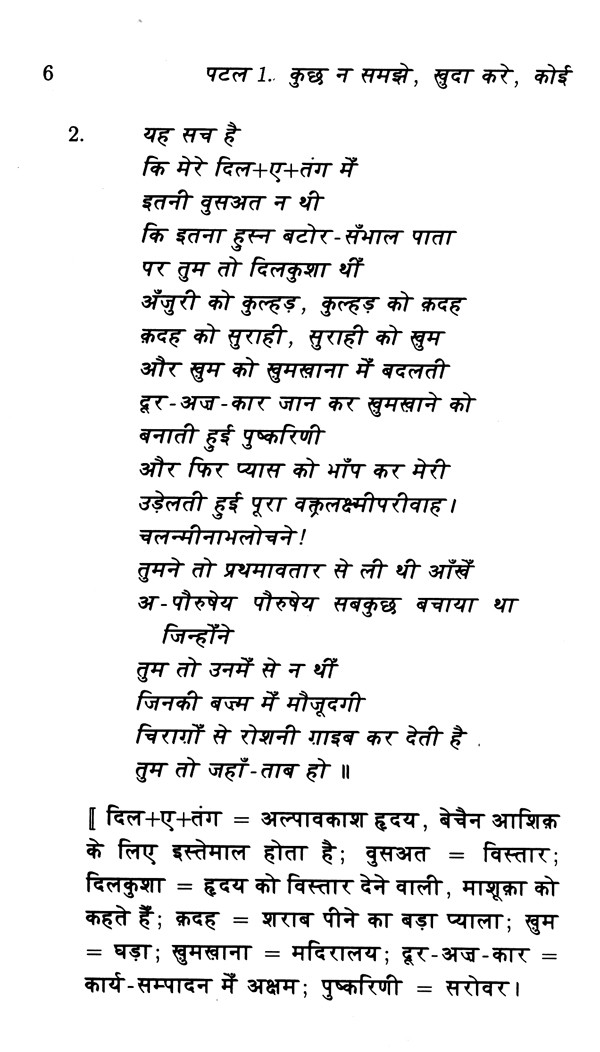 6 पटल 1. कुछ न समझे, खुदा करे, कोई
2. यह सच है
कि मेरे दिल+ए+तंग मेँ
इतनी वुसअत न थी
कि इतना हुस्न बटोर-सँभाल पाता
पर तुम तो दिलकुशा थीँ
अँजुरी को कुल्हड़, कुल्हड़ को क़दह
क़दह को सुराही, सुराही को ख़ुम
और ख़ुम को ख़ुमख़ाना मेँ बदलती
दूर-अज़-कार जान कर ख़ुमख़ाने को
बनाती हुई पुष्करिणी
और फिर प्यास को भाँप कर मेरी
उड़ेलती हुई पूरा वक्त्रलक्ष्मीपरीवाह।
चलन्मीनाभलोचने!
तुमने तो प्रथमावतार से ली थी आँखेँ
अ-पौरुषेय पौरुषेय सबकुछ बचाया था
जिन्होँने
तुम तो उनमेँ से न थीँ
जिनकी बज़्म मेँ मौजूदगी
चिराग़ोँ से रोशनी ग़ाइब कर देती है
तुम तो जहाँ-ताब हो ॥
⟦ दिल+ए+तंग = अल्पावकाश हृदय, बेचैन आशिक़
के लिए इस्तेमाल होता है; वुसअत = विस्तार;
दिलकुशा = हृदय को विस्तार देने वाली, माशूक़ा को
कहते हैँ; क़दह = शराब पीने का बड़ा प्याला; ख़ुम
= घड़ा; ख़ुमख़ाना = मदिरालय; दूर-अज़-कार =
कार्य-सम्पादन मेँ अक्षम; पुष्करिणी = सरोवर।